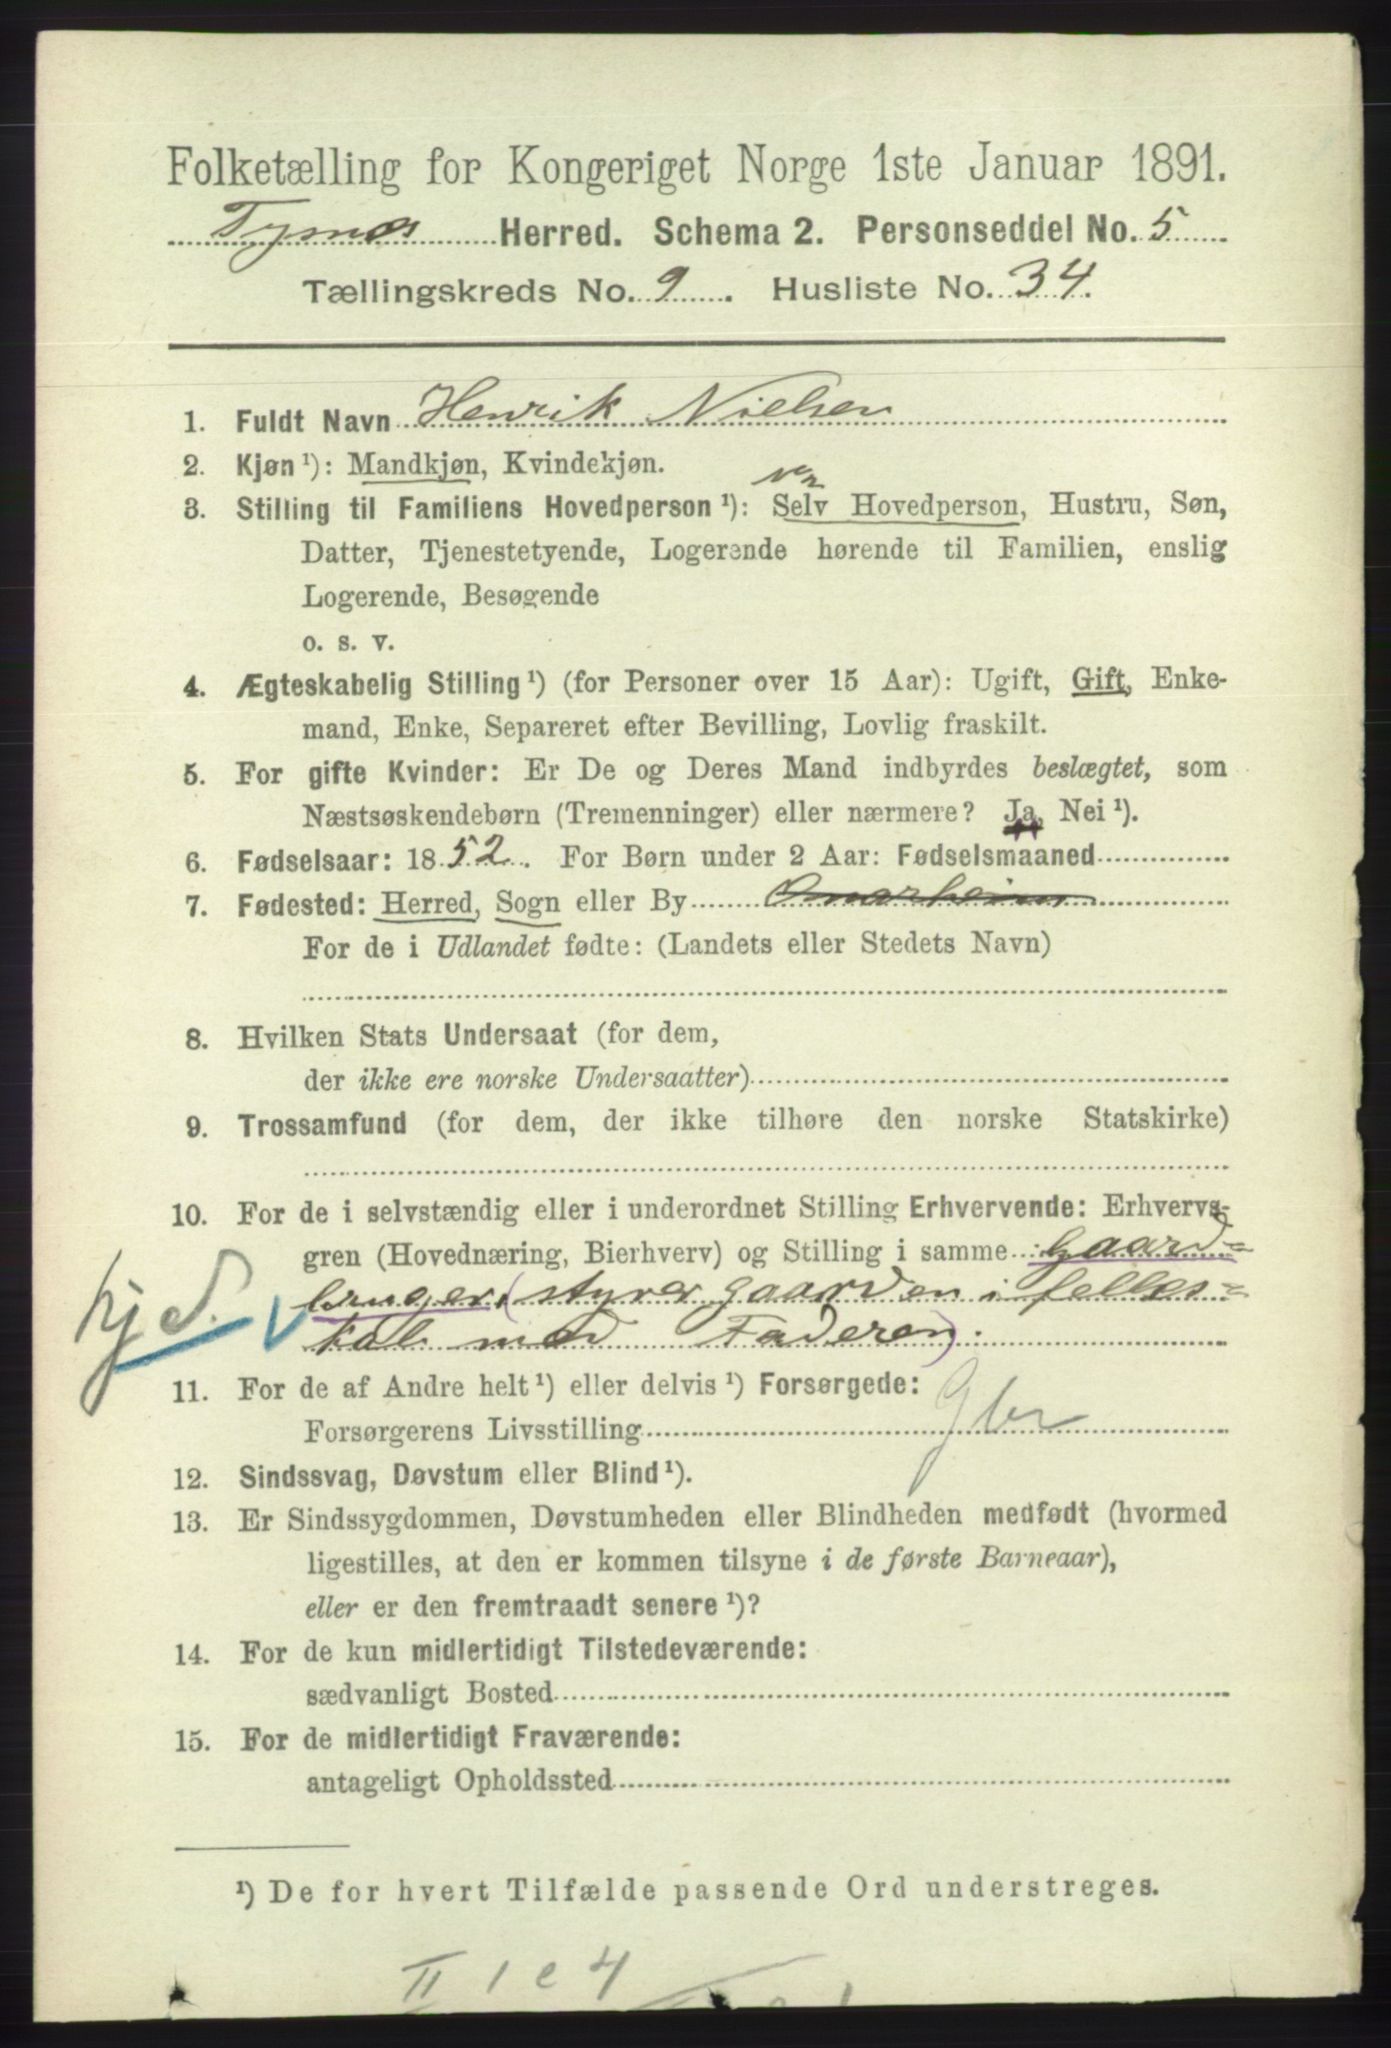 Folketælling for Kongeriget Norge 1ste Januar 1891.
Tysnes Herred. Schema 2. Personseddel No. 5
Tællingskreds No. 9. Husliste No. 34.
1. Fuldt Navn Henrik Nielsen
2. Kjøn ¹): Mandkjøn, Kvindekjøn.
3. Stilling til Familiens Hovedperson ¹): Selv Hovedperson, Hustru, Søn,
Datter, Tjenestetyende, Logerende hørende til Familien, enslig
Logerende, Besøgende
o. s. v.
4. Ægteskabelig Stilling ¹) (for Personer over 15 Aar): Ugift, Gift, Enke-
mand, Enke, Separeret efter Bevilling, Lovlig fraskilt.
5. For gifte Kvinder: Er De og Deres Mand indbyrdes beslægtet, som
Næstsøskendebørn (Tremenninger) eller nærmere? Ja, Nei ¹).
6. Fødselsaar: 1852. For Børn under 2 Aar: Fødselsmaaned
7. Fødested: Herred, Sogn eller By Onarheim
For de i Udlandet fødte: (Landets eller Stedets Navn)
8. Hvilken Stats Undersaat (for dem,
der ikke ere norske Undersaatter)
9. Trossamfund (for dem, der ikke tilhøre den norske Statskirke)
10. For de i selvstændig eller i underordnet Stilling Erhvervende: Erhvervs-
gren (Hovednæring, Bierhverv) og Stilling i samme Gaard=
bruger (styrer gaarden i felles=
skab med Faderen)
hj S.
11. For de af Andre helt ¹) eller delvis ¹) Forsørgede:
Forsørgerens Livsstilling Gbr
12. Sindssvag, Døvstum eller Blind ¹).
13. Er Sindssygdommen, Døvstumheden eller Blindheden medfødt (hvormed
ligestilles, at den er kommen tilsyne i de første Barneaar),
eller er den fremtraadt senere ¹)?
14. For de kun midlertidigt Tilstedeværende:
sædvanligt Bosted
15. For de midlertidigt Fraværende:
antageligt Opholdssted
¹) De for hvert Tilfælde passende Ord understreges.
II 1 e 4